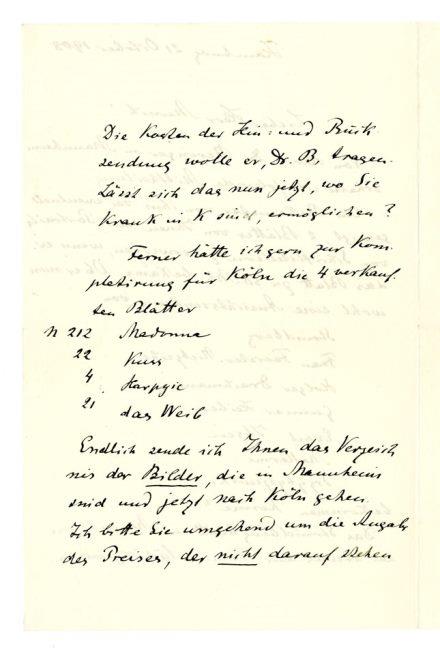 Die Kosten der Hin- und Rück-
sendung wolle er, Dr. B, tragen.
Lässt sich das nun jetzt, wo Sie
Krank in K sind, ermöglichen?
Ferner hätte ich gern zur Kom-
pletirung für Köln die 4 verkauf-
ten Blätter
N 212 Madonna
22 Kuss
4 Harpyie
21 das Weib
Endlich sende ich Ihnen das Verzeich
nis der Bilder, die in Mannheim
sind und jetzt nach Köln gehen.
Ich bitte Sie umgehend um die Angabe
des Preises, der nicht darauf stehen